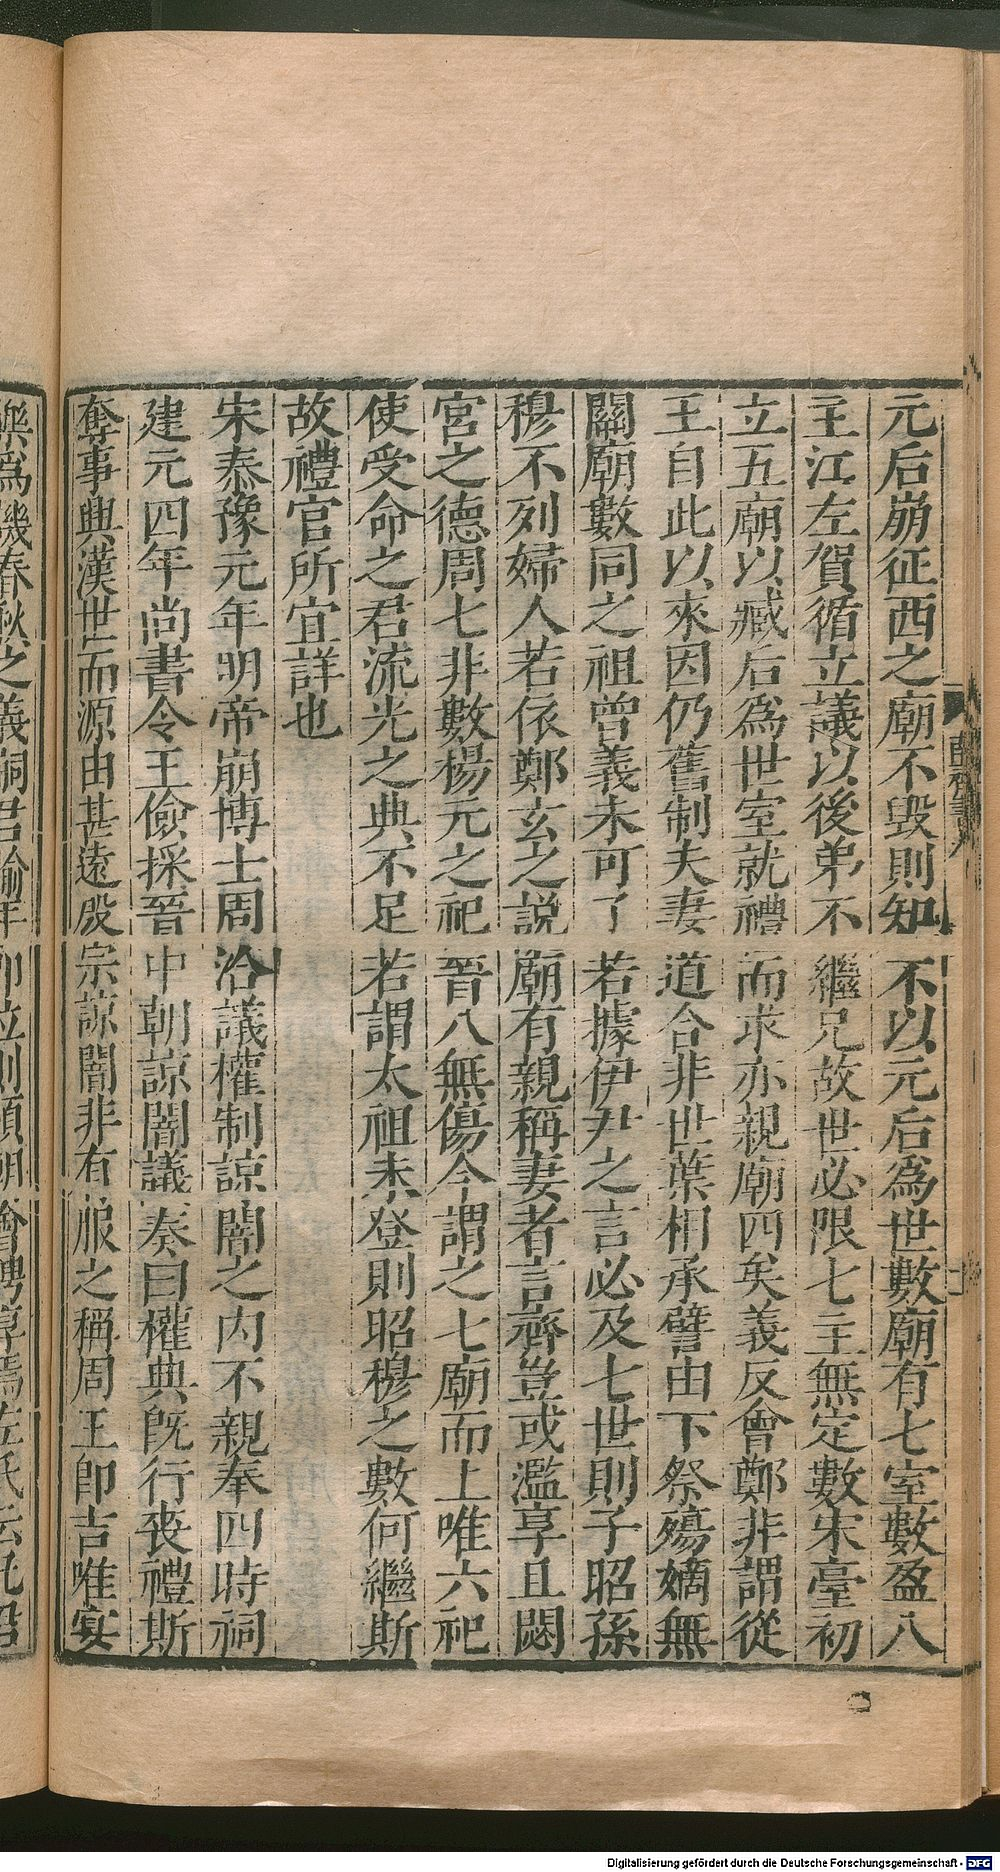 元后崩征西之廟不毀則知不以元后為世數廟有七室數盈八
主江左賀循立議以後弟不繼兄故世必限七主無定數宋臺初
立五廟以臧后為世室就禮而求亦親廟四矣義反會鄭非謂從
王自此以來因仍舊制夫妻道合非世葉相承譬由下祭殤嫡無
關廟數同之祖曾義未可了若據伊尹之言必及七世則子昭孫
穆不列婦人若依鄭玄之説廟有親稱妻者言齊豈或濫享且閟
宮之德周七非數楊元之祀晉八無傷今謂之七廟而上唯六祀
使受命之君流光之典不足若謂太祖未登則昭穆之數何繼斯
故禮官所宜詳也
宋泰豫元年明帝崩博士周洽議權制諒闇之内不親奉四時祠
建元四年尚書令王儉採晉中朝諒闇議奏曰權典既行喪禮斯
奪事興漢世而源由甚遠殷宗諒闇非有服之稱周王即吉唯宴
樂為譏春秋之義嗣君踰年即位則預朝會聘享焉左氏云凡君
南齊書八